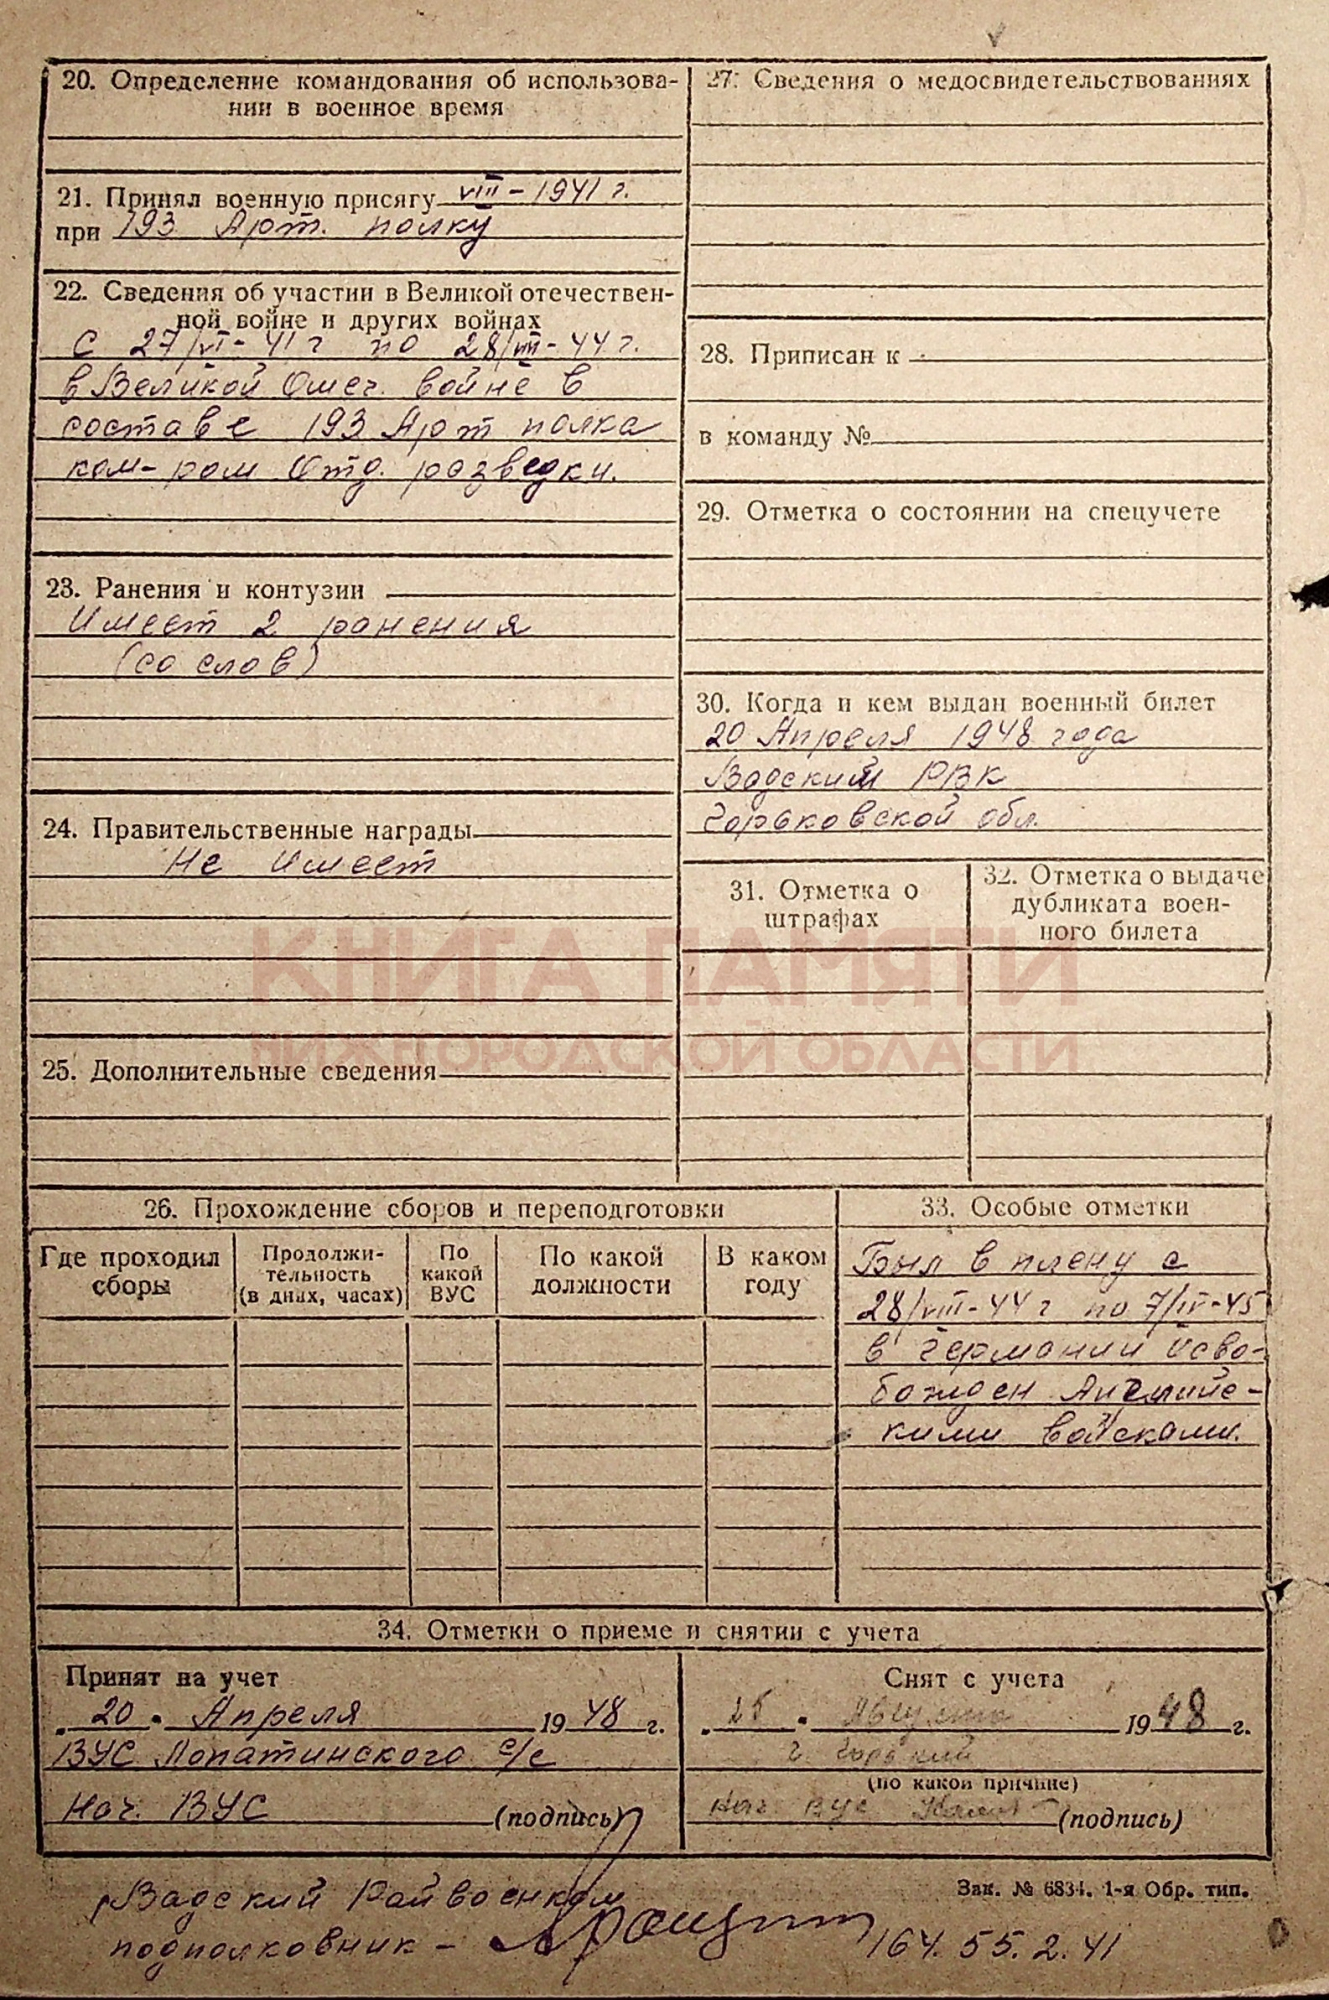 20. Определение командования об использова-
нии в военное время
21. Принял военную присягу VIII - 1941 г.
при 193 Арт. полку
22. Сведения об участии в Великой отечествен-
ной войне и других войнах
с 27/VI - 41 г по 28/VIII - 44 г.
в Великой Отеч. войне в
составе 193 Арт полка
ком-ром Отд. розведки.
23. Ранения и контузии
Имеет 2 ранения
(со слов)
24. Правительственные награды
Не имеет
25. Дополнительные сведения
27. Сведения о медосвидетельствованиях
28. Приписан к
в команду №
29. Отметка о состоянии на спецучете
30. Когда и кем выдан военный билет
20 Апреля 1948 года
Вадским РВК
Горьковской обл.
31. Отметка о
штрафах
32. Отметка о выдаче
дубликата воен-
ного билета
КНИГА ПАМЯТИ
НИЖЕГОРОДСКОЙ ОБЛАСТИ
26. Прохождение сборов и переподготовки
Где проходил
сборы
Продолжи-
тельность
(в днях, часах)
По
какой
ВУС
По какой
должности
В каком
году
33. Особые отметки
Был в плену с
28/VIII - 44 г по 7/IV - 45
в Германии Осво-
божден Английс-
кими войсками.
34. Отметки о приеме и снятии с учета
Принят на учет
20 Апреля 1948 г.
ВУС Лопатинского с/с
Нач. ВУС (подпись)
Снят с учета
25 Августа 1948 г.
г. Горький
(по какой причине)
Нач ВУС (подпись)
Зак. № 6834. 1-я Обр. тип.
Вадский Райвоенком
подполковник -
164. 55. 2. 41